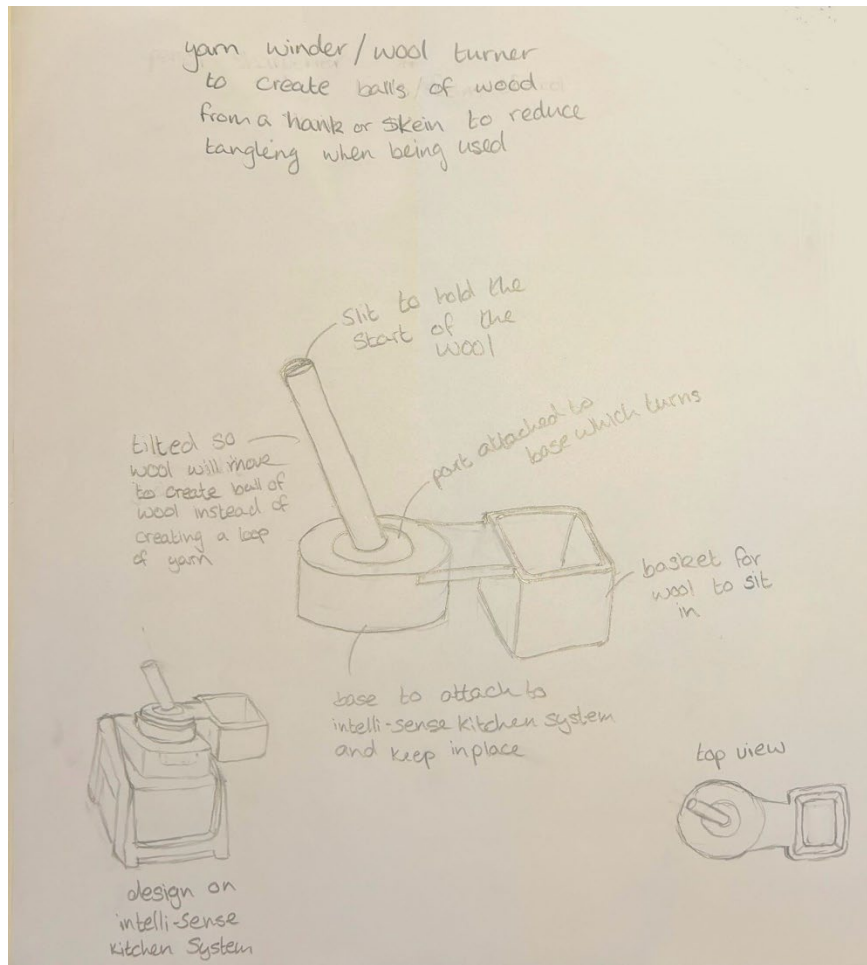 yarn winder/wool turner
to create balls of wood
from a hank or skein to reduce
tangleing when being used
Slit to hold the
start of the
wool
part attached to
base which turns
tilted so
wool will move
to create ball of
wool instead of
creating a loop
of yarn
basket for
wool to sit
in
base to attach to
intelli-sense kitchen system
and keep inplace
top view
design on
intelli-sense
kitchen System